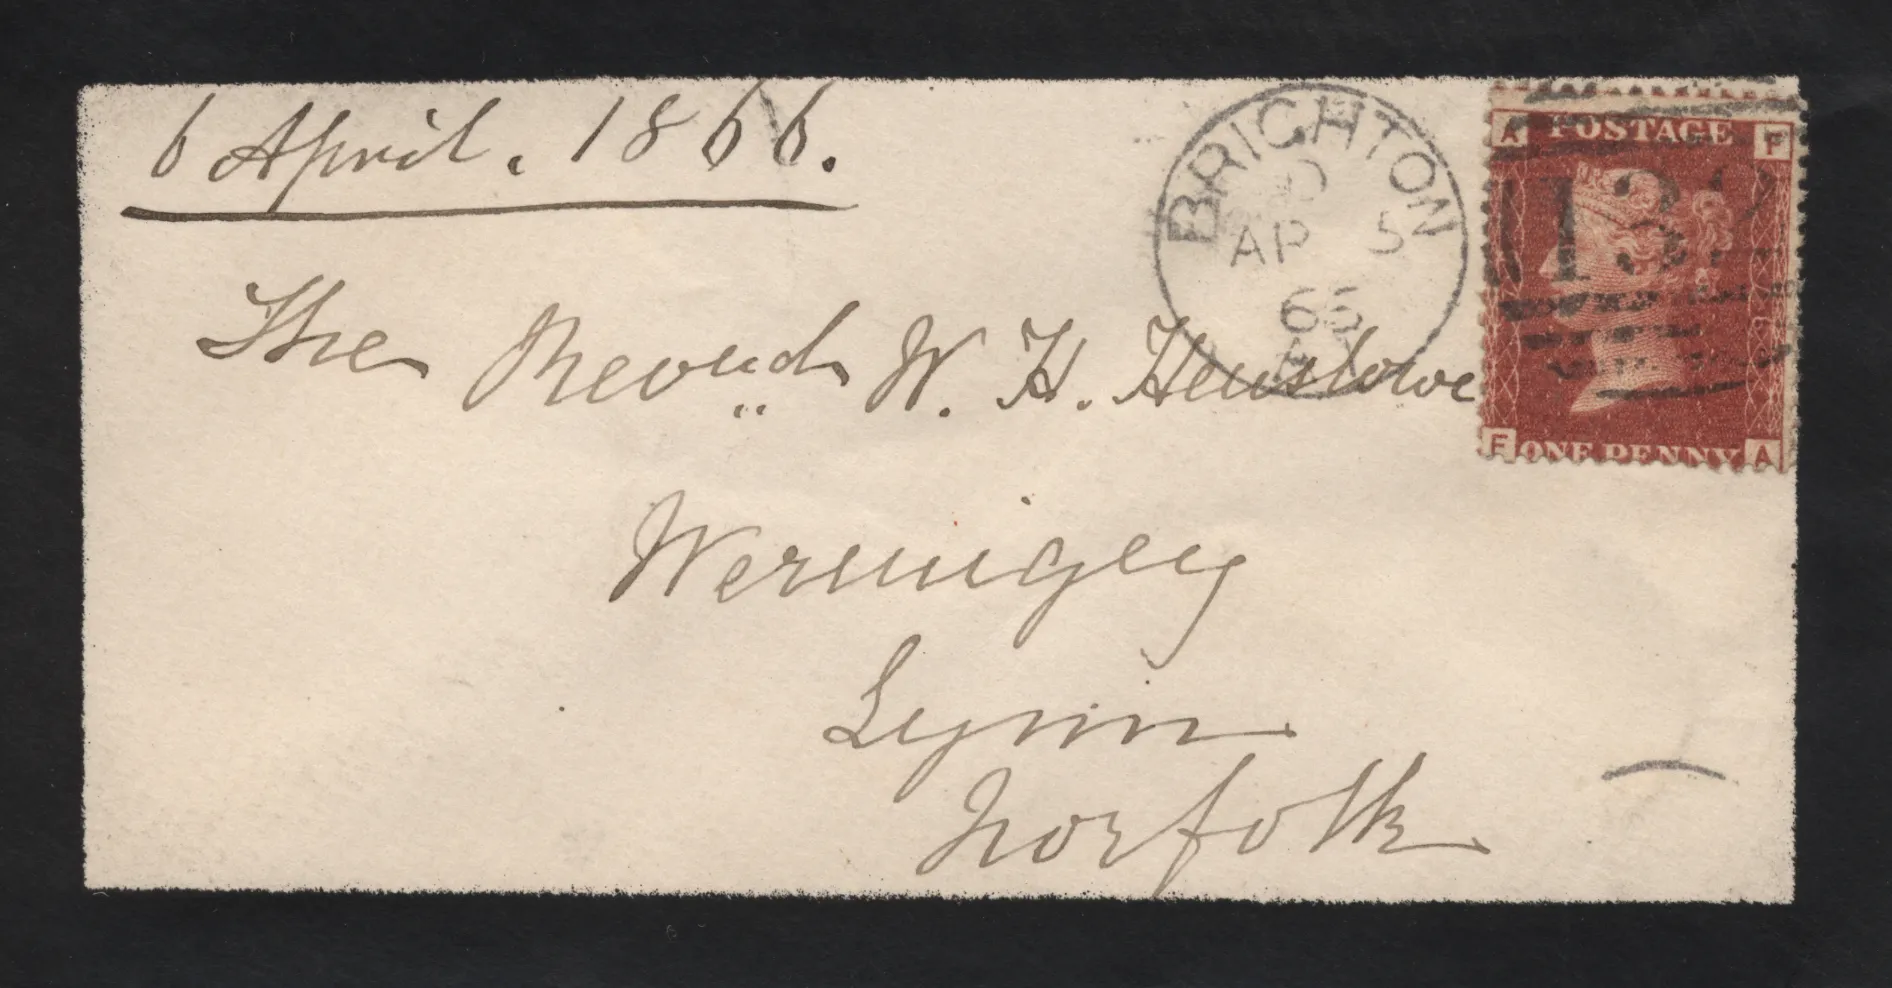 6 April. 1866.
BRIGHTON
AP 5
66
A POSTAGE F
132
F ONE PENNY A
The Revd W. H. Henslowe
Wermigey
Lynn
Norfolk